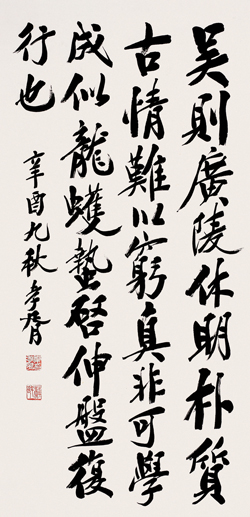 吴則廣陵休明朴質
古情難以窮真非可學
成似龍蠖蟄啓伸盤復
行也
辛酉九秋孝胥